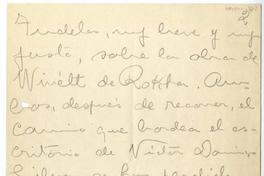 2.
muy breve y muy
justo, sobre la obra de
Winétt de Rokha. Am-
bos, después de recorrer, el
camino que bordea el es-
critorio de Víctor Domingo
Silva, se han perdido